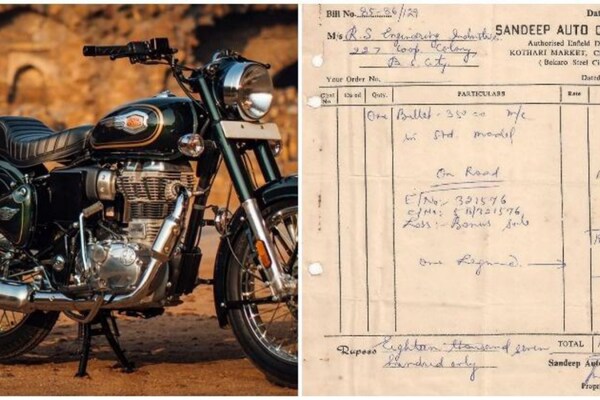 Bill No. 85-86/129
Da
SANDEEP AUTO C
M/s R.S. Engineering Industries
Authorised Enfield D
227 Coop. Colony
KOTHARI MARKET, C
B. S. City
(Bokaro Steel Ci
Your Order No.
Dated
Qnty. PARTICULARS Rate
One Bullet - 350 cc m/c
in Std. model
On Road
E/No. 321576
C/No: 5 B/321576
Less:- Bonus
one
Rupees Eighteen thousand seven
hundred only
TOTAL
Sandeep Aut
Propri